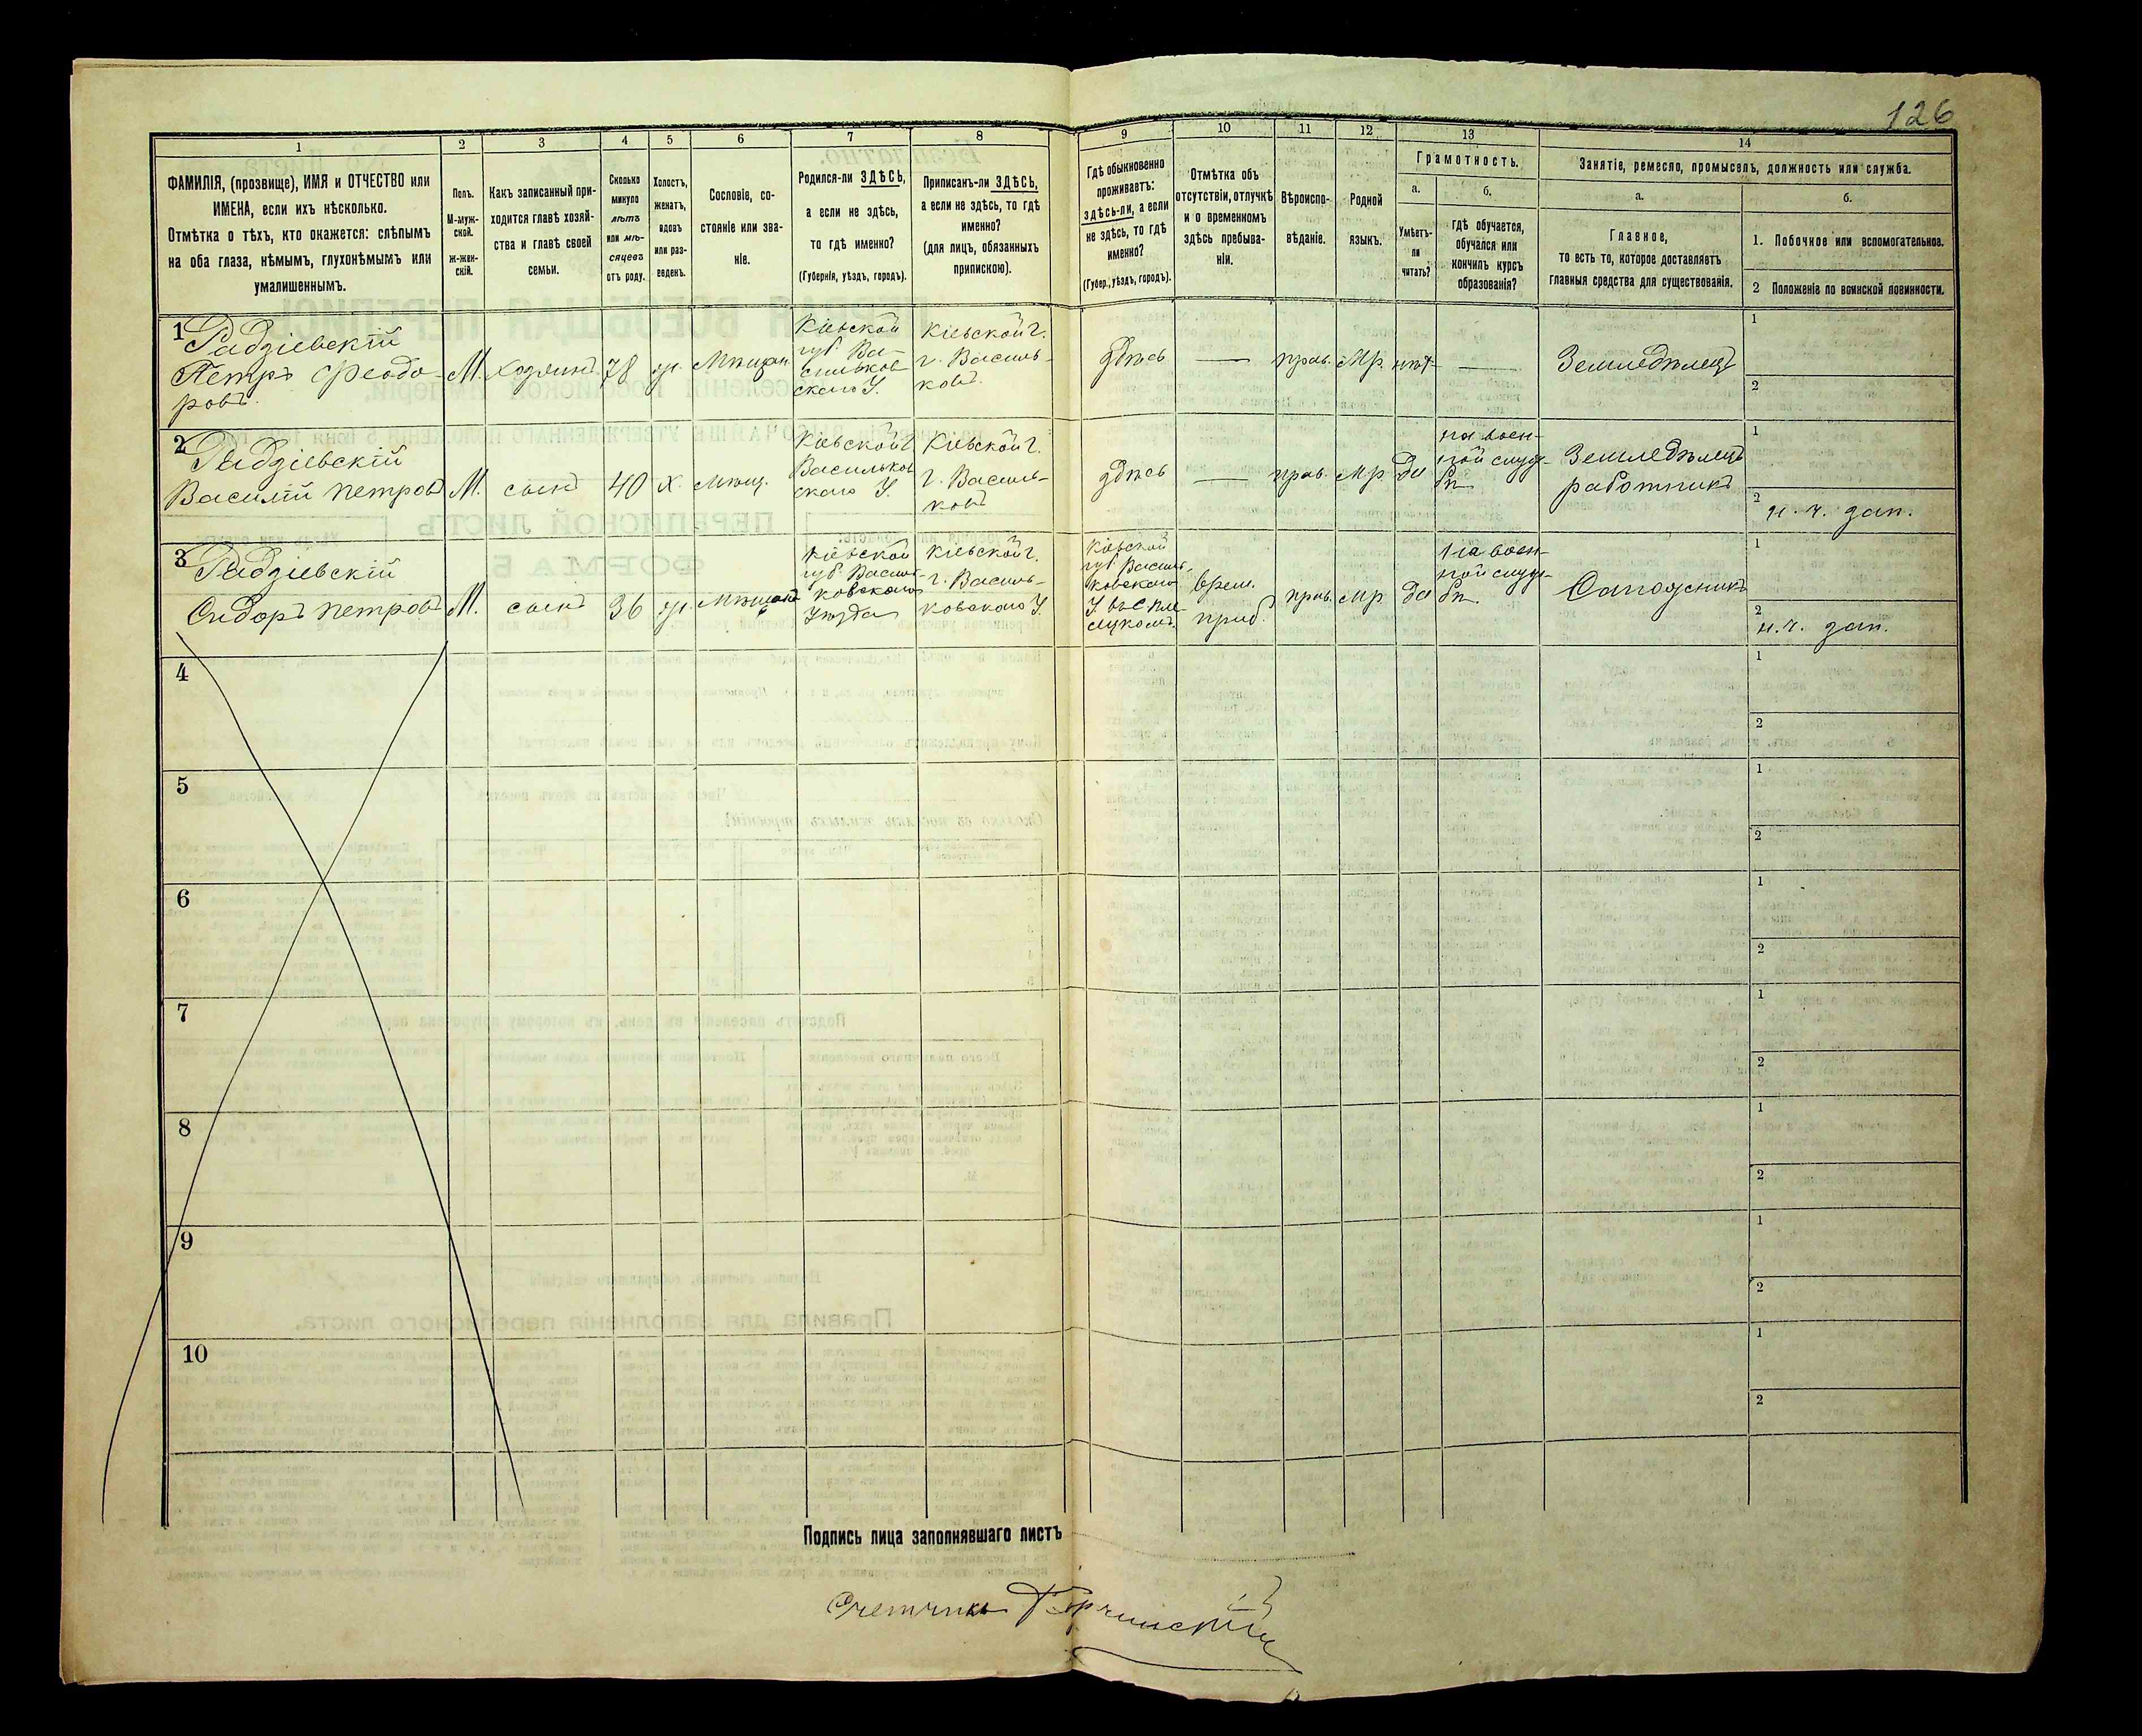 126
1
2
3
4
5
6
7
8
9
10
11
12
13
14
ФАМИЛІЯ, (прозвище), ИМЯ и ОТЧЕСТВО или
ИМЕНА, если ихъ нѣсколько.
Отмѣтка о тѣхъ, кто окажется: слѣпымъ
на оба глаза, нѣмымъ, глухонѣмымъ или
умалишеннымъ.
Полъ.
М-муж-
ской.
Ж-жен-
скій.
Какъ записанный при-
ходится главѣ хозяй-
ства и главѣ своей
семьи.
Сколько
минуло
лѣтъ
или мѣ-
сяцевъ
отъ роду.
Холостъ,
женатъ,
вдовъ
или раз-
веденъ.
Сословіе, со-
стояніе или зва-
ніе.
Родился-ли ЗДѢСЬ,
а если не здѣсь,
то гдѣ именно?
(Губернія, уѣздъ, городъ).
Приписанъ-ли ЗДѢСЬ,
а если не здѣсь, то гдѣ
именно?
(для лицъ, обязанныхъ
припискою).
Гдѣ обыкновенно
проживаетъ:
здѣсь-ли, а если
не здѣсь, то гдѣ
именно?
(Губер., уѣздъ, городъ).
Отмѣтка объ
отсутствіи, отлучкѣ
и о временномъ
здѣсь пребыва-
ніи.
Вѣроиспо-
вѣданіе.
Родной
языкъ.
Грамотность.
а.
Умѣетъ-
ли
читать?
б.
гдѣ обучается,
обучался или
кончилъ курсъ
образованія?
Занятіе, ремесло, промыселъ, должность или служба.
а.
Главное,
то есть то, которое доставляетъ
главныя средства для существованія.
б.
1. Побочное или вспомогательное.
2 Положеніе по воинской повинности.
1
Радзіевскій
Петръ Феодо-
ровъ.
М.
Хозяинъ
78
Мѣщан
Кіевской
губ. Ва-
сильков-
скаго У.
Кіевской г.
г. Василь-
ковъ.
здѣсь
—
прав.
Мр.
нѣт
—
Земледѣлецъ
1
2
2
Радзіевскій
Василій Петровъ
М.
сынъ
40
х.
Мѣщ.
Кіевской г
Васильков
скаго У.
Кіевской г.
г. Василь-
ковъ
здѣсь
—
прав.
Мр.
да
на воен-
ной служ-
бѣ
Земледѣлецъ
работникъ
1
2
н. ч. зап.
3
Радзіевскій
Сидоръ Петровъ
М.
сынъ
36
Мѣщанъ
Кіевской
губ. Василь-
ковскаго
Уѣзда
Кіевской г.
г. Василь-
ковскаго У.
Кіевской
губ. Василь-
ковскаго
врем.
приб.
прав.
Мр
да
На воен-
ной служ-
бѣ.
Сапожникъ
1
2
н. ч. зап.
4
1
2
5
1
2
6
1
2
7
1
2
8
1
2
9
1
2
10
1
2
Подпись лица заполнявшаго листъ
Счетчикъ